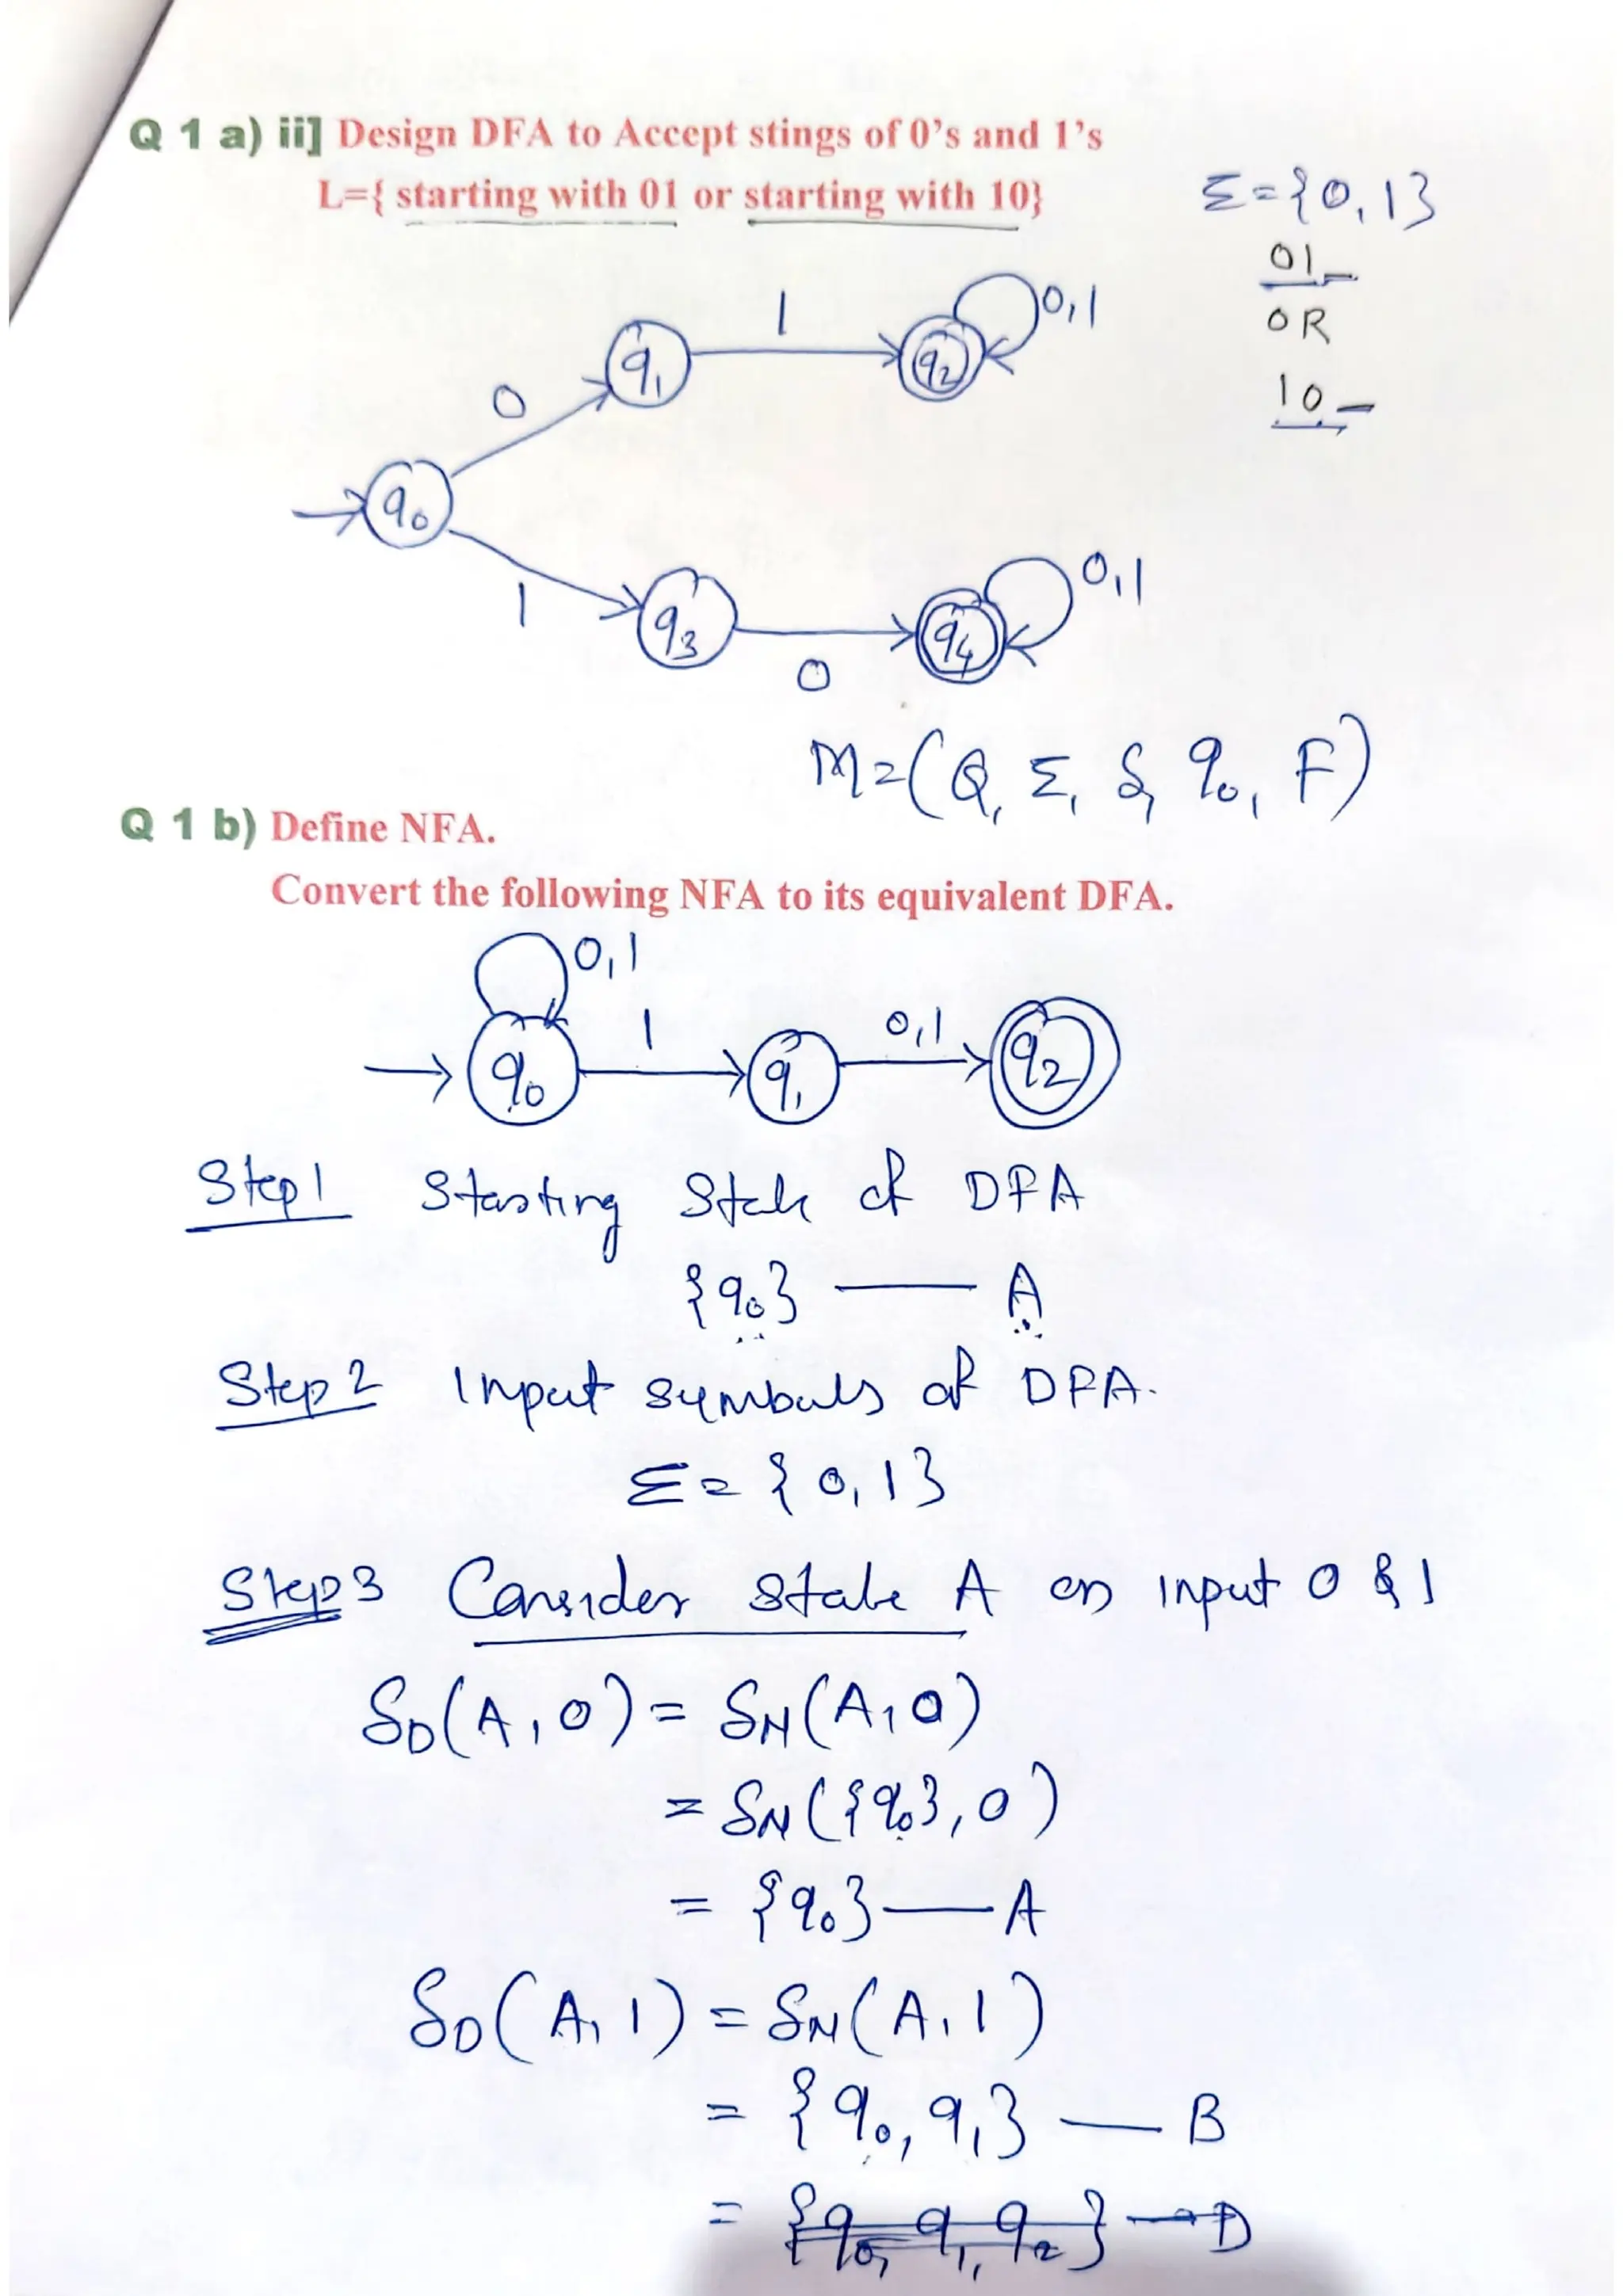 Q 1 a) ii] Design DFA to Accept stings of 0's and 1's
L={ starting with 01 or starting with 10}
Σ={0,1}
01_
OR
10_
0
q1
1
q2
0,1
q0
1
q3
0
q4
0,1
M=(Q, Σ, δ, q0, F)
Q 1 b) Define NFA.
Convert the following NFA to its equivalent DFA.
0,1
q0
1
q1
0,1
q2
Step1 Starting State of DFA
{q0} — A
Step 2 Input symbols of DFA.
Σ = {0,1}
Step3 Consider state A on input 0 & 1
δD(A,0) = δN(A,0)
= δN({q0},0)
= {q0} — A
δD(A,1) = δN(A,1)
= {q0,q1} — B
= {q0, q1, q2} — D